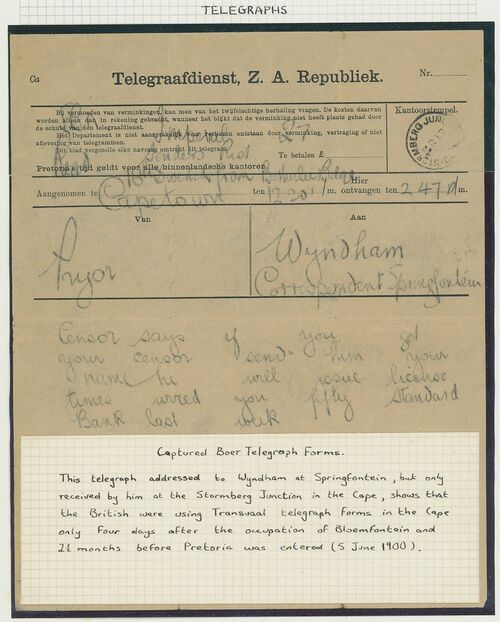 TELEGRAPHS
Ca
Telegraafdienst, Z. A. Republiek.
Nr.
Bij vermoeden van verminkingen, kan men van het twijfelachtige herhaling vragen. De kosten daarvan
worden alleen dan in rekening gebracht, wanneer het blijkt dat de verminking niet heeft plaats gehad door
de schuld van den telegraafdienst.
Het Departement is niet aansprakelijk voor verliezen ontstaan door verminking, vertraging of niet
aflevering van telegrammen.
Dit blad vergezelle elke navraag omtrent dit telegram.
Kantoorstempel.
STORMBERG JUNC
Te betalen £
Pretoria's tijd geldt voor alle binnenlandsche kantoren.
Hier
Aangenomen te Capetown ten 12 20 /m. ontvangen ten 2 47 P/m.
Van
Aan
Pryor
Wyndham
Correspondent Springfontein
Censor says if you get
your censor send him your
name he will issue license
times wired you fifty standard
Bank last week
Captured Boer Telegraph Forms.
This telegraph addressed to Wyndham at Springfontein, but only
received by him at the Stormberg Junction in the Cape, shows that
the British were using Transvaal telegraph forms in the Cape
only Four days after the occupation of Bloemfontein and
2½ months before Pretoria was entered (5 June 1900).